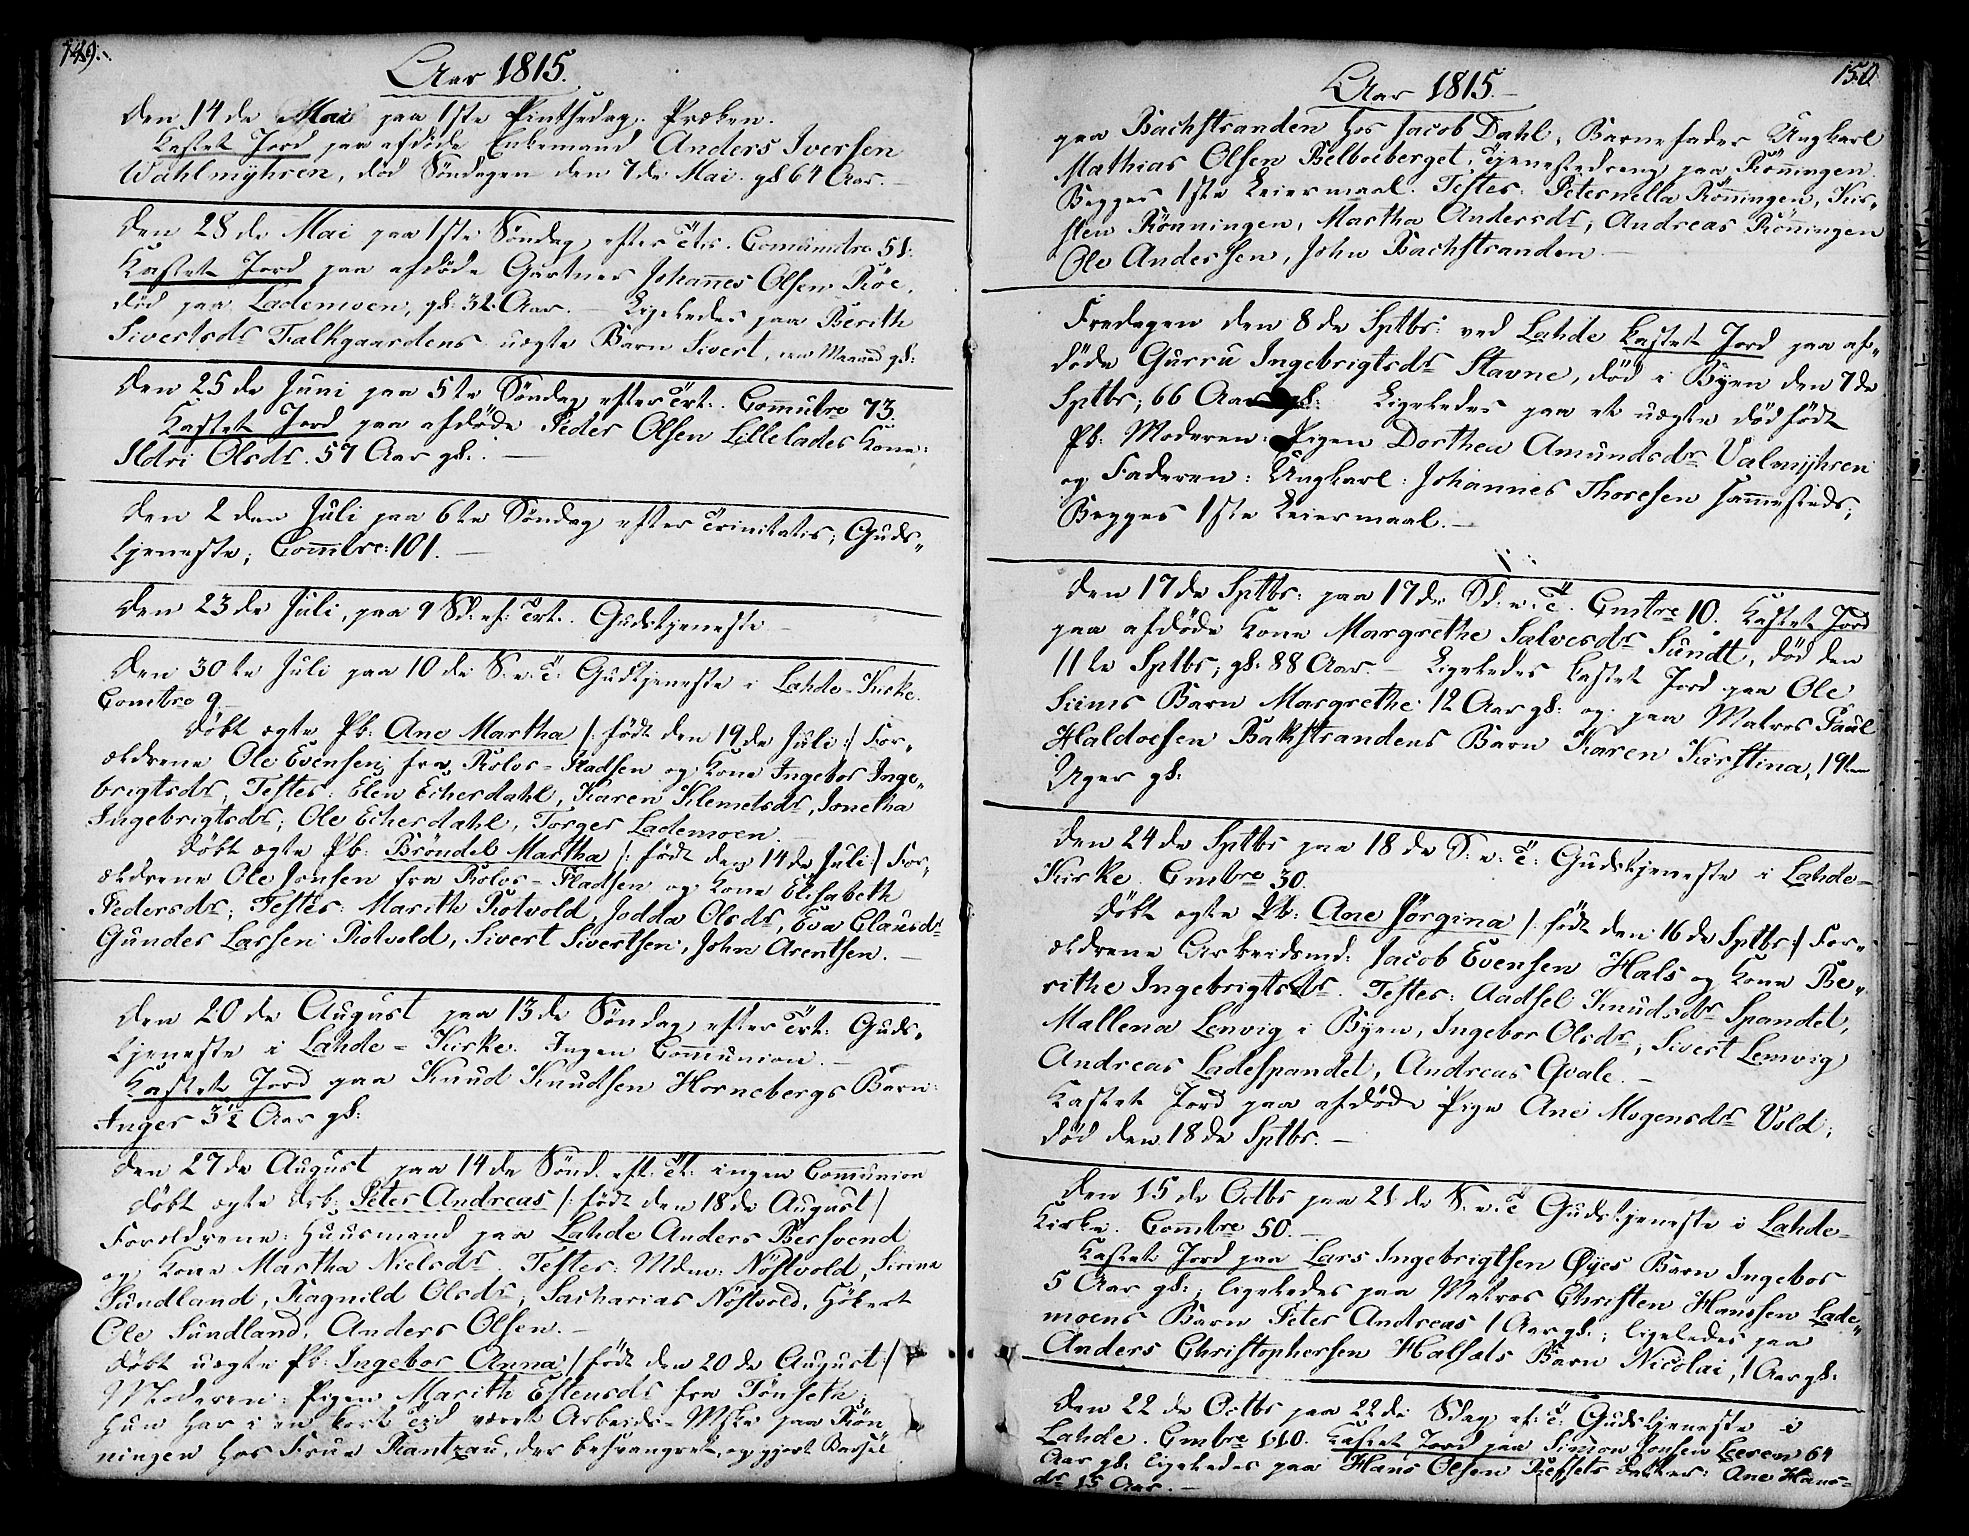 149.
Aar 1815.
Den 14de Mai paa 1ste Pintsedag. Præken.
Kastet Jord paa afdöde Enkemand Anders Iversen
Wahlmyhren, död Söndagen den 7de Mai. gl 64 Aar.
Den 28de Mai paa 1ste Söndag efter Tris. Communtre 51.
Kastet Jord paa afdöde Gartner Johannes Olsen Röe,
död paa Lademoen, gl: 32 Aar. – Ligeledes paa Berith
Sivertsdr Falkgaardens uægte Barn Sivert, een Maaned gl:
Den 25de Juni paa 5te Söndag efter Trt. Commutre 73.
Kastet Jord paa afdöde Peder Olsen Lillelades Kone:
Ildri Olsdr. 57 Aar gl:. –
Den 2den Juli paa 6te Söndag efter Trinitatis, Guds-
tjeneste, Commtre: 101. –
Den 23de Juli, paa 9 Sd. ef: Trt. Gudstjeneste –
Den 30te Juli paa 10de S. e. T: Gudtjeneste i Lahde-Kirke.
Comtre 9.
Döbt ægte Pb: Ane Martha /: födt den 19de Juli :/ For-
ældrene Ole Evensen fra Rolos-Pladsen og Kone Ingebor Inge-
brigtsdr, Testes: Elen Echerdahl, Karen Klemetsdr, Jonetha
Ingebrigtsdr; Ole Echerdahl, Torger Lademoen.
Döbt ægte Pb: Bröndel Martha /: födt den 14de Juli :/ For-
ældrene Ole Jonsen fra Rolos-Pladsen og Kone Elisabeth
Pedersdr; Testes: Marith Rotvold, Jodda Olsdr, Eva Clausdr
Gunder Larsen Rotvold, Sivert Sivertsen, John Arentsen. –
Den 20de August paa 13de Söndag efter Trt: Guds-
tjeneste i Lahde-Kirke. Ingen Communion. –
Kastet Jord paa Knud Knudsen Hornebergs Barn:
Inger 3½ Aar gl:
Den 27de August paa 14de Sönd. eft: Tt: ingen Communion
Döbt ægte Drb: Peter Andreas /: födt den 18de August /
Foreldrene: Huusmand paa Lahde Anders Bersvend
og Kone Martha Nielsdr. Testes: Mdm: Nöstvold, Sirine
Sundland, Ragnild Olsdr, Sacharias Nöstvold, Hökert
Ole Sundland, Anders Olsen. –
Döbt uægte Pb: Ingebor Anna /: födt den 20de August :/
Moderen: Pigen Marith Estensdr fra Tönseth;
hun har i en kort Tid været Arbeids-Mske paa Rön
ningen hos Frue Rantzau, der besvangret, og gjort Barsel
150.
Aar 1815.
paa Bachstranden hos Jacob Dahl; Barnefader Ungkarl
Mathias Olsen Belboeberget, Tjenestedreng paa Rönningen.
Begges 1ste Leiermaal. Testes: Peternella Rönningen, Kir-
sten Rönningen, Martha Andersdr, Andreas Röningen
Ole Andersen, John Bachstranden. –
Fredagen den 8de Sptbr: ved Lahde Kastet Jord paa af-
döde Gurru Ingebrigtsdr Stavne, död i Byen den 7de
Sptbr; 66 Aar gl: Ligeledes paa et uægte dödfödt
Pb: Moderen: Pigen Dorthea Amundsdr Valmyhren
og Faderen: Ungkarl: Johannes Thoresen sammesteds;
Begges 1ste Leiermaal. –
Den 17de Sptbr: paa 17de Sd: e. T. Cmtre 10. Kastet Jord
paa afdöde Kone Margrethe Salvesdr Sundt, död den
11te Sptbr; gl: 88 Aar. – Ligeledes kastet Jord paa Ole
Siims Barn Margrethe 12 Aar gl: og paa Matros Paul
Haldoesen Bakstrandens Barn Karen Kirstina, 19ten
Uger gl:
Den 24de Sptbr paa 18de S: e: T: Gudstjeneste i Lahde-
Kirke. Cmbre 30.
Döbt ægte Pb: Ane Jörgina /: födt den 16de Sptbr :/ For-
ældrene Arbeidsmd: Jacob Evensen Hals og Kone Be-
rithe Ingebrigtsdr. Testes: Aadsel Knudsdr Spandet,
Mallena Lenvig i Byen, Ingebor Olsdr, Sivert Lenvig,
Andreas Ladespandet, Andreas Qvale. –
Kastet Jord paa afdöde Pige Ane Mogensdr Vold;
död den 18de Sptbr. –
Den 15de Octbr paa 21de S. e. T Gudstjeneste i Lahde-
Kirke. Commbre 50. –
Kastet Jord paa Lars Ingebrigtsen Øyes Barn Ingebor
5 Aar gl:, ligeledes paa Matros Christen Hanssen Lade-
moens Barn Peter Andreas 1 Aar gl:; ligeledes paa
Anders Christophersen Halsals Barn Nicolai, 1 Aar gl:
Den 22de Octbr paa 22de Sdag ef: T: Gudstjeneste i
Lahde. Cmbre 110. Kastet Jord paa Simon Jonsen Leeren 64
Aar gl: ligeledes paa Hans Olsen Datter: Ane Hans-
dr 15 Aar. –